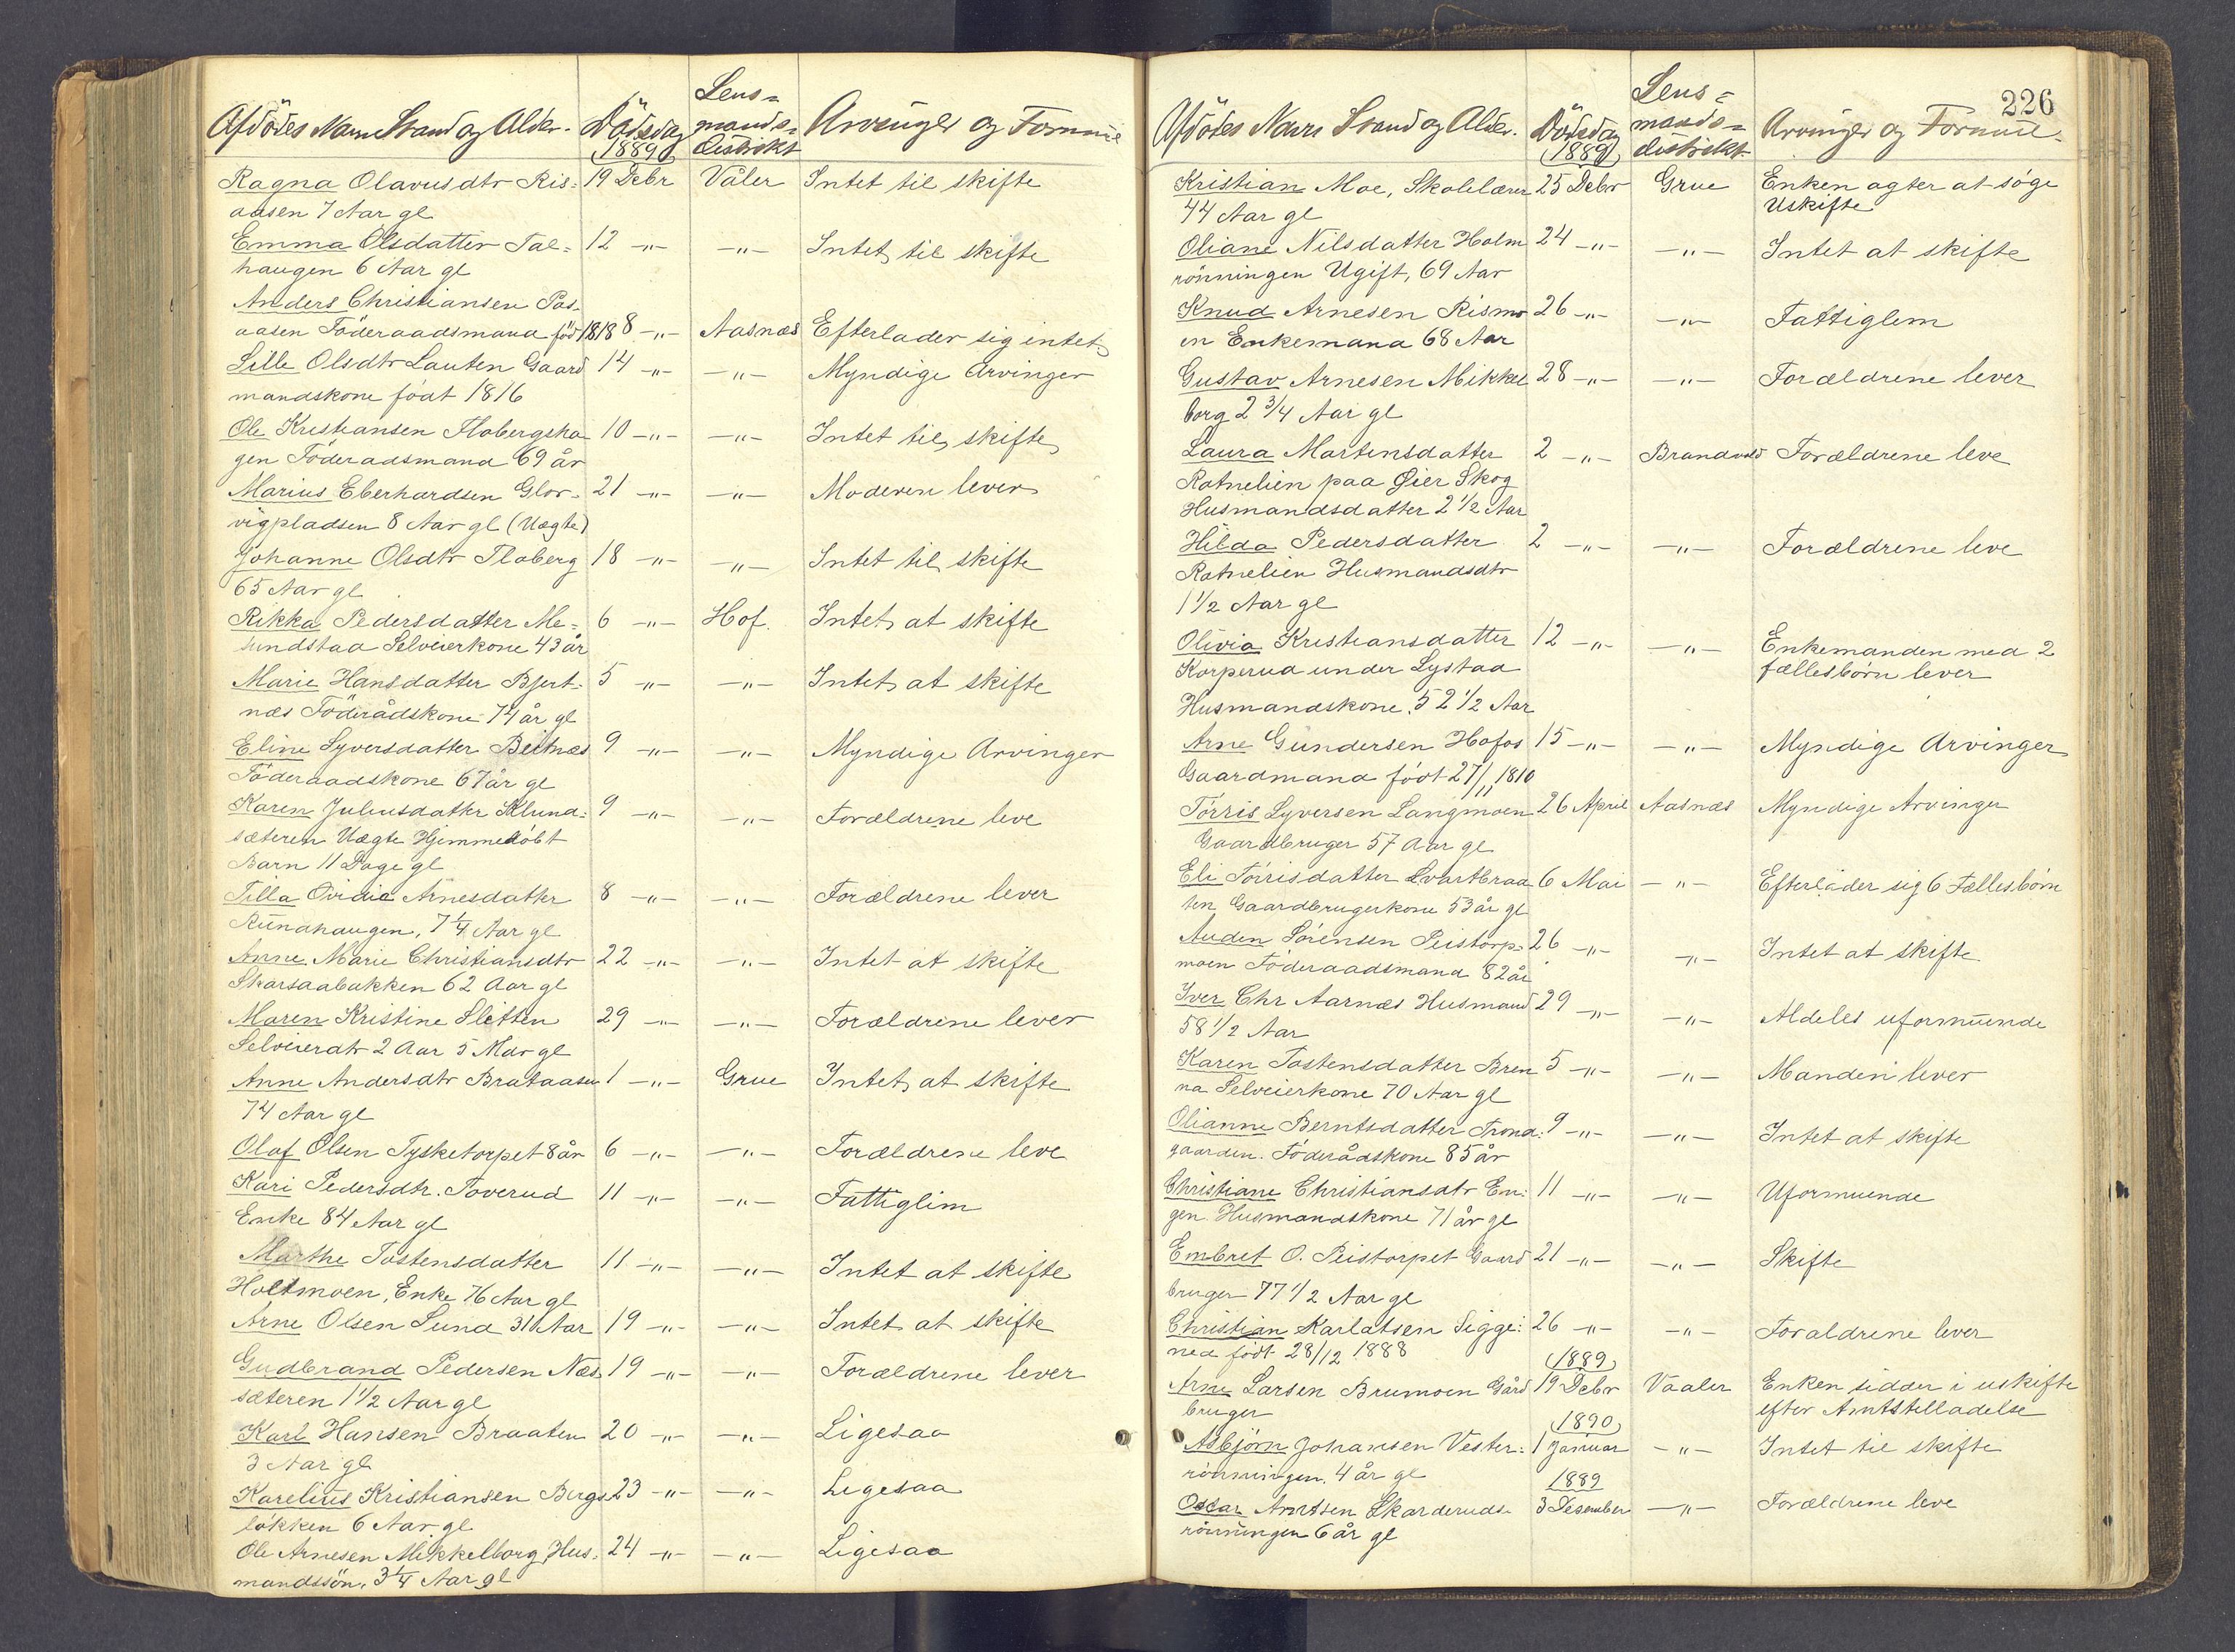 Afdödes Navn Stand og Alder. Dödsdag 1889 Lens=mands=Distrikt Arvinger og Formue
Ragna Olavusdtr Ris= 19 Debr Våler Intet til skifte
aasen 7 Aar gl
Emma Olsdatter Tal= 12 -"- -"- Intet til skifte
haugen 6 Aar gl
Anders Christiansen Pos-
aasen Föderaadsmand föd 1818 8 -"- Aasnæs Efterlader sig intet
Sille Olsdtr Lauten Gaard 14 -"- -"- Myndige Arvinger
mandskone födt 1816
Ole Kristiansen Flobergsha 10 -"- -"- Intet til skifte
gen Föderaadsmand 69 år
Marius Eberhardsen Glor- 21 -"- -"- Moderen lever
vigpladsen 8 Aar gl (Uægte)
Johanne Olsdtr Floberg 18 -"- -"- Intet til skifte
65 Aar gl
Rikka Pedersdatter Me= 6 -"- Hof. Intet at skifte
lundstad Selveierkone 43 år
Marie Hansdatter Bjert- 5 -"- -"- Intet at skifte
næs Föderådskone 74 år gl
Eline Syversdatter Beitnæs 9 -"- -"- Myndige Arvinger
Föderaadskone 67 år gl
Karen Juliusdatter Klund= 9 -"- -"- Forældrene leve
sæteren Uægte Hjemmedöbt
Barn 11 Dage gl
Tilla Ovidia Arnesdatter 8 -"- -"- Forældrene lever
Runahaugen, 7 1/4 Aar gl
Anne Marie Christiansdtr 22 -"- -"- Intet at skifte
Skarsaabakken 62 Aar gl
Maren Kristine Sletten 29 -"- -"- Forældrene lever
Selveierdtr 2 Aar 5 Mdr gl
Anne Andersdtr Brataasen 1 -"- Grue Intet at skifte
74 Aar gl
Olaf Olsen Tysketorpet 8 år 6 -"- -"- Forældrene leve
Kari Pedersdtr. Toverud 11 -"- -"- Fattiglim
Enke 84 Aar gl
Marthe Tostensdatter 11 -"- -"- Intet at skifte
Holtmoen, Enke 76 Aar gl
Arne Olsen Lund 31 Aar 19 -"- -"- Intet at skifte
Gudbrand Pedersen Næs 19 -"- -"- Forældrene lever
sæteren 1 1/2 Aar gl
Karl Hansen Braaten 20 -"- -"- Ligesaa
3 Aar gl
Karelius Kristiansen Bergs 23 -"- -"- Ligesaa
løkken 6 Aar gl
Ole Arnesen Mikkelborg Hus- 24 -"- -"- Ligesaa
mandssön. 3 1/4 Aar gl
226
Afdödes Navn Stand og Alder. Dödsdag (1889) Lens=mands=distrikt Arvinger og Formue
Kristian Moe, Skolelærer 25 Debr Grue Enken agter at søge
44 Aar gl Uskifte
Oliane Nilsdatter Holm 24 -"- -"- Intet at skifte
rönningen Ugift, 69 Aar
Knud Arnesen Rismo 26 -"- -"- Fattiglem
en Enkemand 68 Aar
Gustav Arnesen Mikkel 28 -"- -"- Forældrene lever
borg 2 3/4 Aar gl
Laura Martinsdatter 2 -"- Brandvold Forældrene leve
Rotnelien paa Øier Skog
Husmandsdatter 2 1/2 Aar
Hilda Pedersdatter 2 -"- -"- Forældrene leve
Rotnelien Husmandsdtr
1 1/2 Aar gl
Olivia Kristiansdatter 12 -"- -"- Enkemanden med 2
Korperud under Lystad fællesbørn lever
Husmandskone. 52 1/2 Aar
Arne Gundersen Hofos 15 -"- -"- Myndige Arvinger
Gaardmand födt 27/11 1810
Törris Syversen Langmoen 26 April Aasnæs Myndige Arvinger
Gaardbruger 57 Aar gl
Eli Törrisdatter Svartbraa 6 Mai -"- Efterlader sig 6 Fællesbörn
ten Gaardbrugerkone 53 år gl
Auden Sörensen Peistorp- 26 -"- -"- Intet at skifte
moen Föderaadsmand 82 år
Iver Chr Aarnæs Husmand 29 -"- -"- Aldeles uformuende
58 1/2 Aar
Karen Tostensdatter Bren 5 -"- -"- Manden lever
na Selveierkone 70 Aar gl
Olianne Berntsdatter Trond: 9 -"- -"- Intet at skifte
gaarden. Föderådskone 85 år
Christiane Christiansdtr En: 11 -"- -"- Uformuende
gen Husmandskone 71 år gl
Embret O. Peistorpet Gaard 21 -"- -"- Skifte
bruger 77 1/2 Aar gl
Christian Karlotsen Sigge: 26 -"- -"- Foraldrene lever
ned födt 28/12 1888 (1889)
Arne Larsen Brumoen Gård 19 Debr Vaaler Enken sidder i uskifte
bruger (1890) efter Amtstilladelse
Asbjörn Johansen Vester: 1 Januar -"- Intet til skifte
rönningen. 4 år gl 1889
Oscar Amtsen Skarderuds- 3 Desember -"- Forældrene leve
rönningen 6 år gl